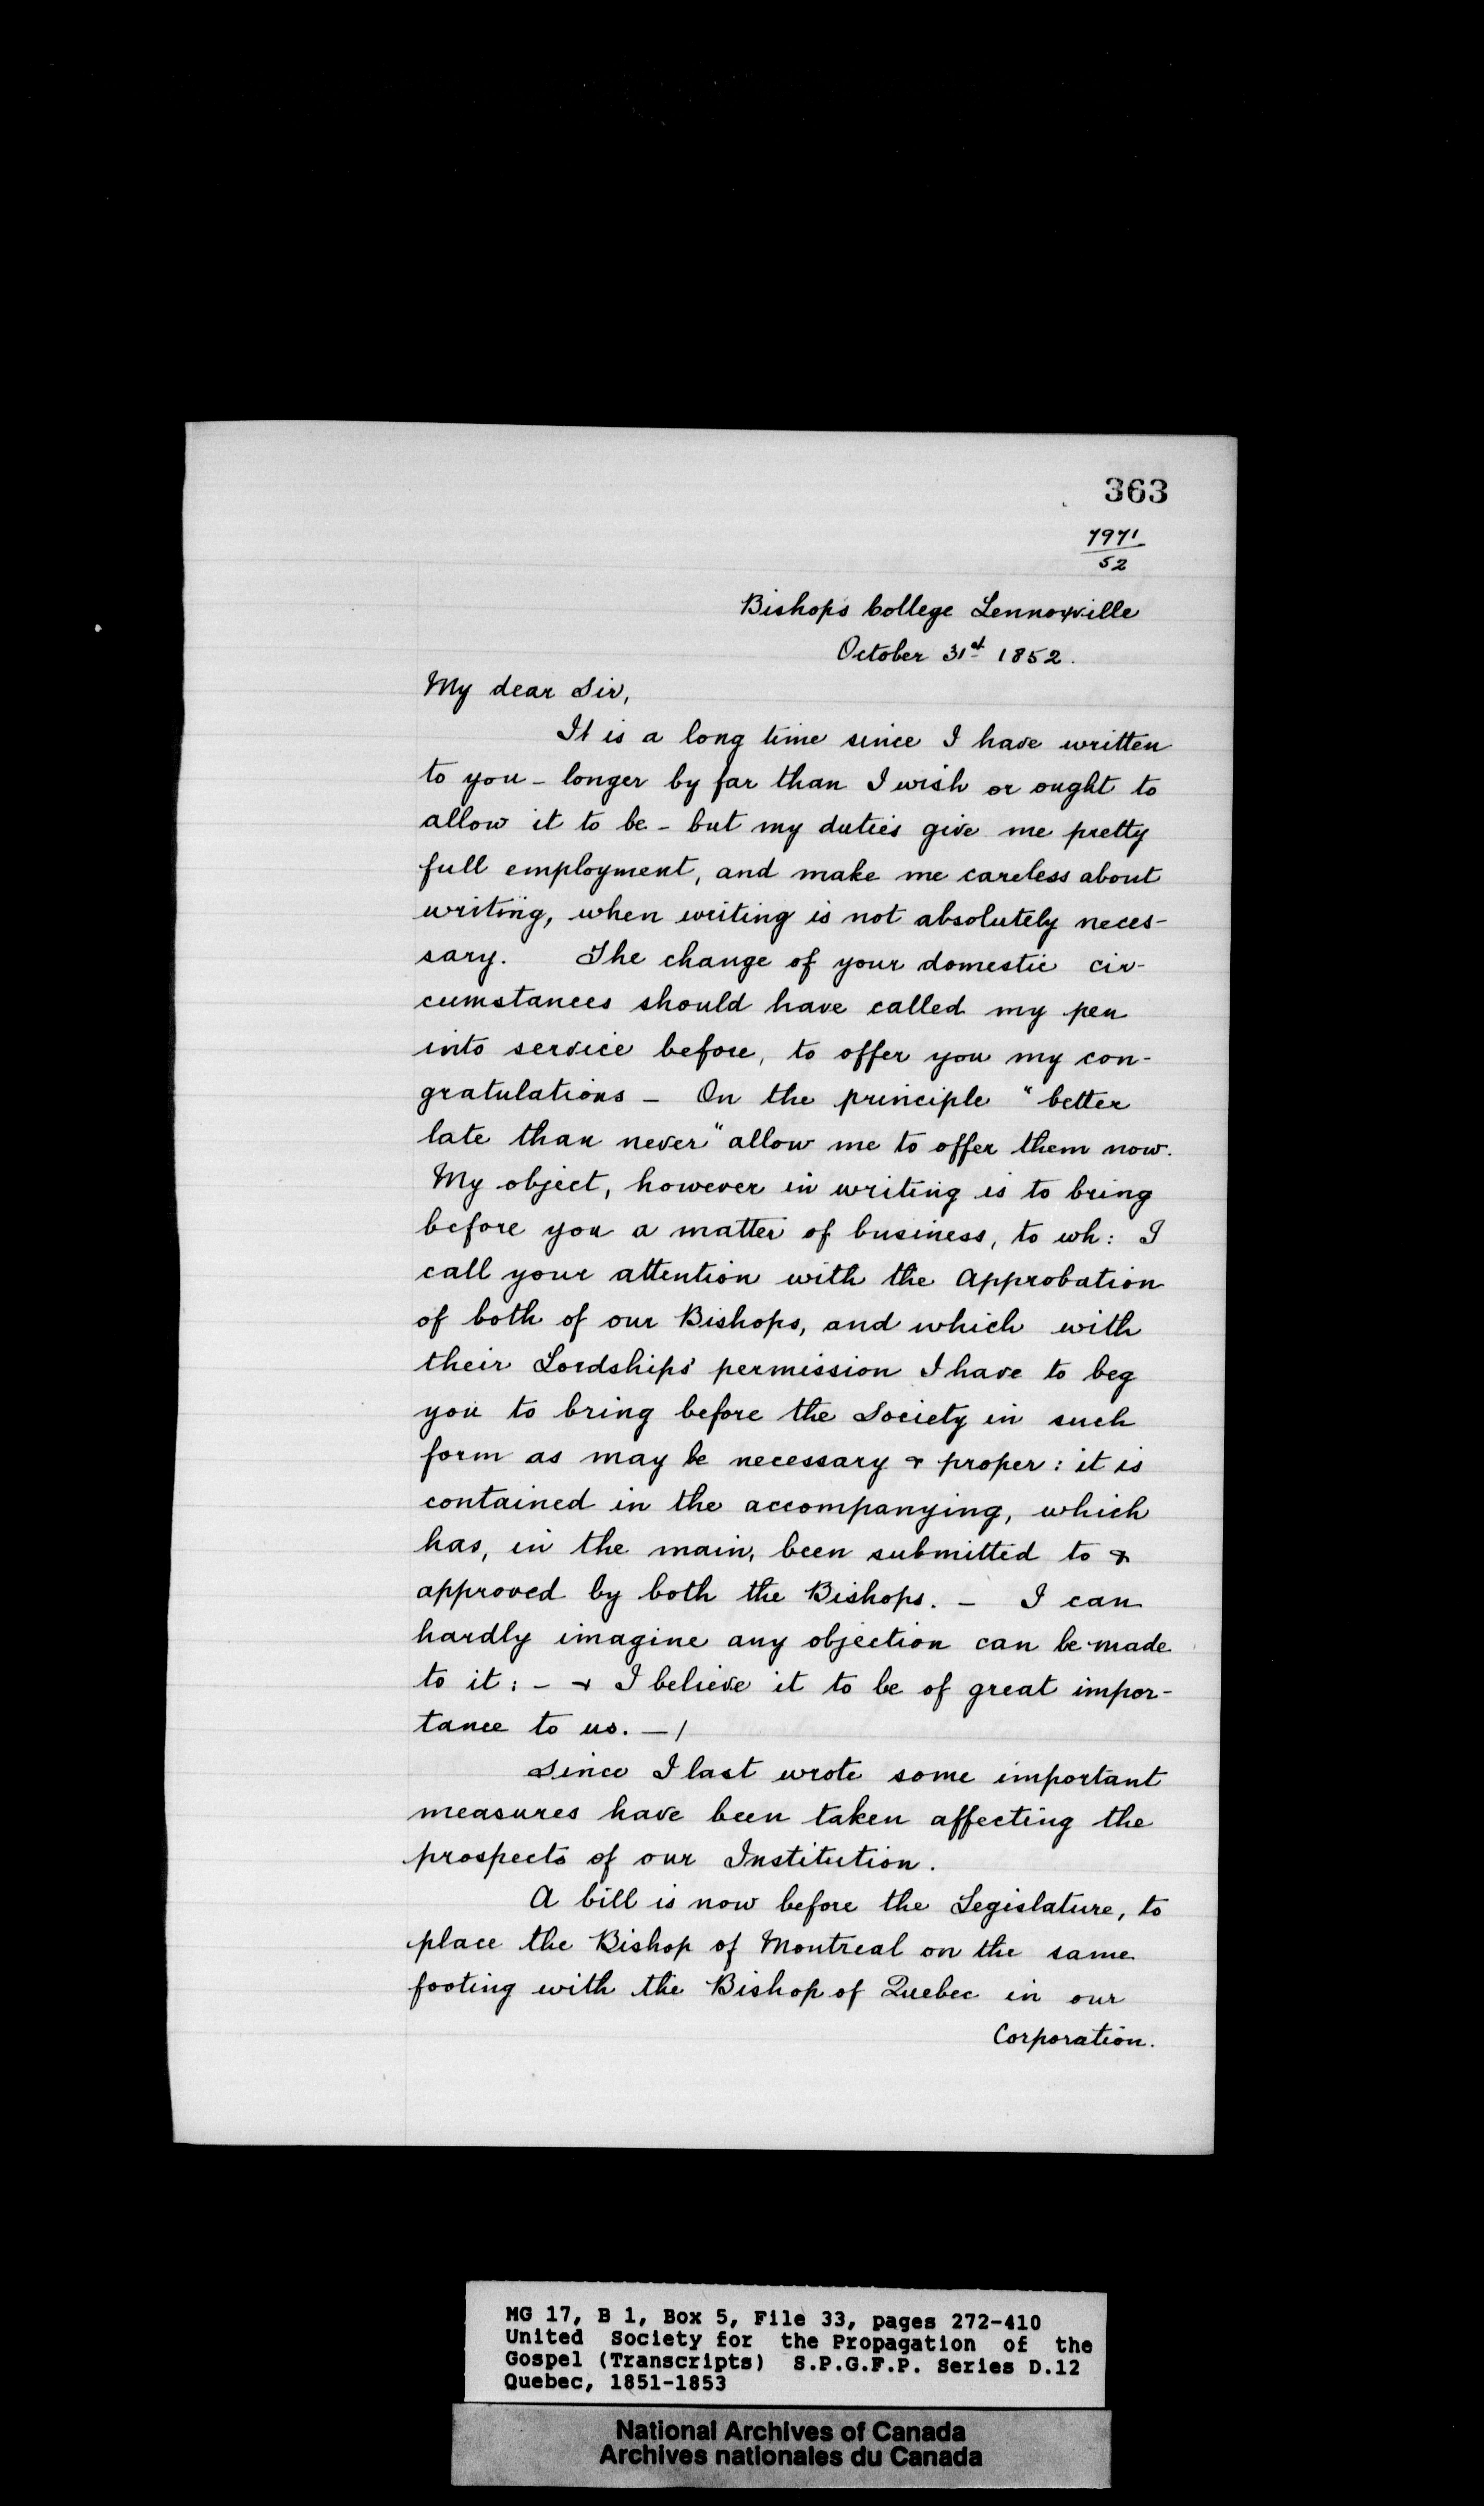 363
7971
52
Bishops College Lennoxville
October 31st 1852.
My dear Sir,
It is a long time since I have written
to you - longer by far than I wish or ought to
allow it to be - but my duties give me pretty
full employment, and make me careless about
writing, when writing is not absolutely neces-
sary. The change of your domestic cir-
cumstances should have called my pen
into service before, to offer you my con-
gratulations - On the principle "better
late than never" allow me to offer them now.
My object, however in writing is to bring
before you a matter of business, to wh: I
call your attention with the approbation
of both of our Bishops, and which with
their Lordships' permission I have to beg
you to bring before the Society in such
form as may be necessary & proper: it is
contained in the accompanying, which
has, in the main, been submitted to &
approved by both the Bishops. - I can
hardly imagine any objection can be made
to it: - & I believe it to be of great impor-
tance to us. - /
Since I last wrote some important
measures have been taken affecting the
prospects of our Institution.
A bill is now before the Legislature, to
place the Bishop of Montreal on the same
footing with the Bishop of Quebec in our
Corporation.
MG 17, B 1, Box 5, File 33, pages 272-410
United Society for the Propagation of the
Gospel (Transcripts) S.P.G.F.P. Series D.12
Quebec, 1851-1853
National Archives of Canada
Archives nationales du Canada